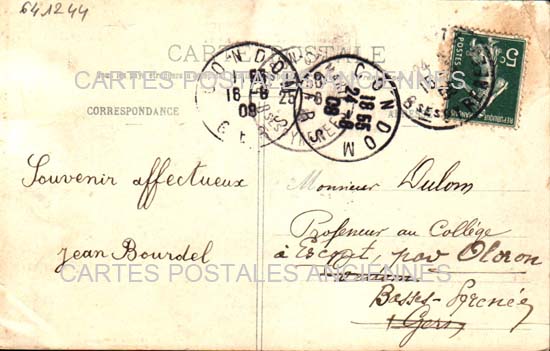 641244
CARTE POSTALE
CORRESPONDANCE
CONDOM
16 25
08
GERS
CONDOM
18 55
24 -8
08
GERS
5c
POSTES
REPUBLIQUE FRANÇAISE
Souvenir affectueux
Jean Bourdel
Monsieur Dulom
Professeur au Collège
à Escot, par Oloron
Condom
Basses-Pyrénées
Gers
CARTES POSTALES ANCIENNES
CARTES POSTALES ANCIENNES